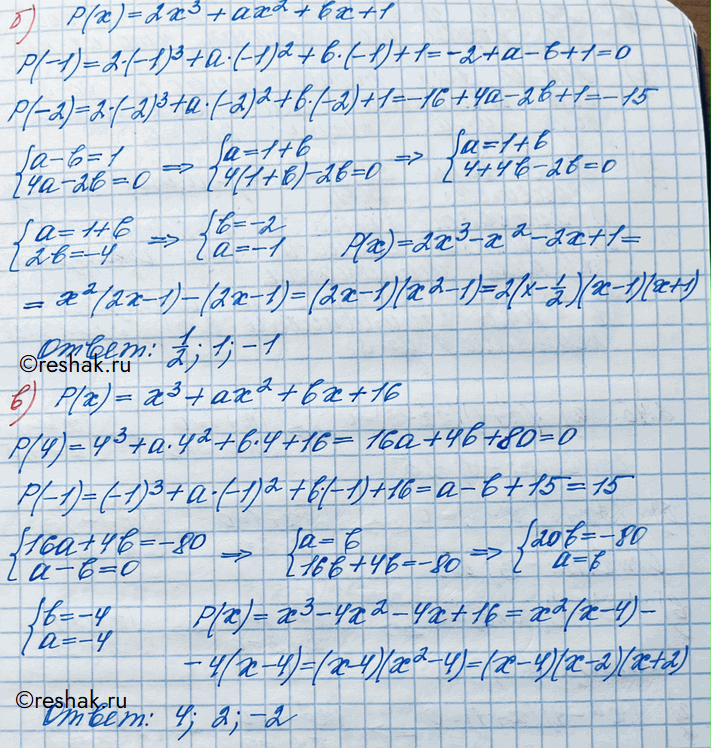 б) P(x)=2x³+ax²+bx+1
P(-1)=2·(-1)³+a·(-1)²+b·(-1)+1=-2+a-b+1=0
P(-2)=2·(-2)³+a·(-2)²+b·(-2)+1=-16+4a-2b+1=-15
{a-b=1 {a=1+b {a=1+b
{4a-2b=0 ⇒ {4(1+b)-2b=0 ⇒ {4+4b-2b=0
{a=1+b {b=-2
{2b=-4 ⇒ {a=-1 P(x)=2x³-x²-2x+1=
=x²(2x-1)-(2x-1)=(2x-1)(x²-1)=2(x-1/2)(x-1)(x+1)
Ответ: 1/2; 1; -1
©reshak.ru
в) P(x)=x³+ax²+bx+16
P(4)=4³+a·4²+b·4+16=16a+4b+80=0
P(-1)=(-1)³+a·(-1)²+b(-1)+16=a-b+15=15
{16a+4b=-80 {a=b {20b=-80
{a-b=0 ⇒ {16b+4b=-80 ⇒ {a=b
{b=-4 P(x)=x³-4x²-4x+16=x²(x-4)-
{a=-4
-4(x-4)=(x-4)(x²-4)=(x-4)(x-2)(x+2)
©reshak.ru
Ответ: 4; 2; -2